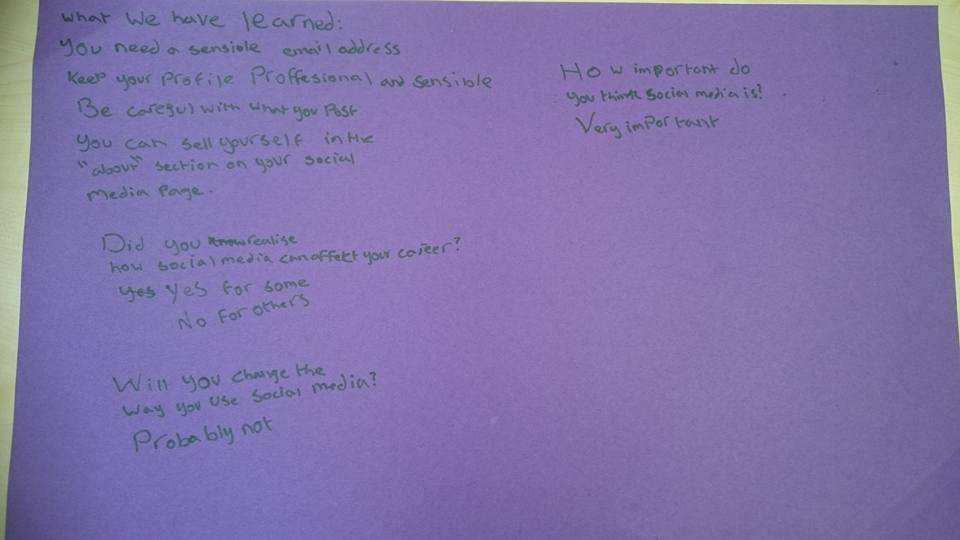 what We have learned:
You need a sensible email address
Keep your Profile Proffesional and sensible
Be careful with what you Post
You can sell yourself in the
"about" section on your social
Media Page.
Did you know realise
how social media can affect your career?
yes Yes for some
No for others
Will you change the
way you use social media?
Probably not
How important do
you think social media is?
Very important